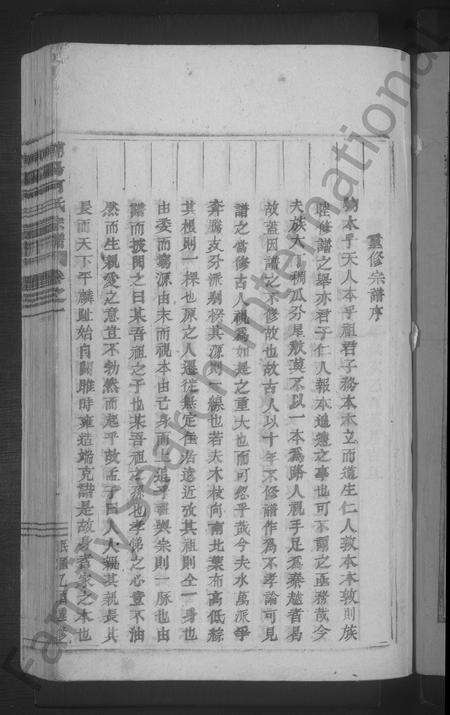 重修宗譜序
物本乎天人本乎祖君子務本本立而道生仁人敦本本敦則族
睦修譜之舉亦君子仁人報本追遠之事也可不謂之亟務哉今
夫族大丁稠瓜分星散莫不以一本為路人視手足為秦越者焉
故蓋因譜之不修故也故古人以十年不修譜作為不孝論可見
譜之當修古人視為如是之重大也而可忽乎哉今夫水萬派爭
奔騰支分派別溯其源則一線也若夫木枝向南北葉布高低綜
其根則一棵也原之人遷徙無定住居遠近攷其祖則仝一身也
由委而窮源由末而視本由亡身而上追乎 與宗則一脉也由
譜而披閱之曰某吾祖之子也某吾祖之孫也孝弟之心豈不油
然而生親愛之意豈不勃然而起乎故孟子曰人人親其親長其
長而天下平麟趾始自關雎時雍造端克諧是故身者家之本也
氏宗譜
卷之
民國乙
FamilySearch International